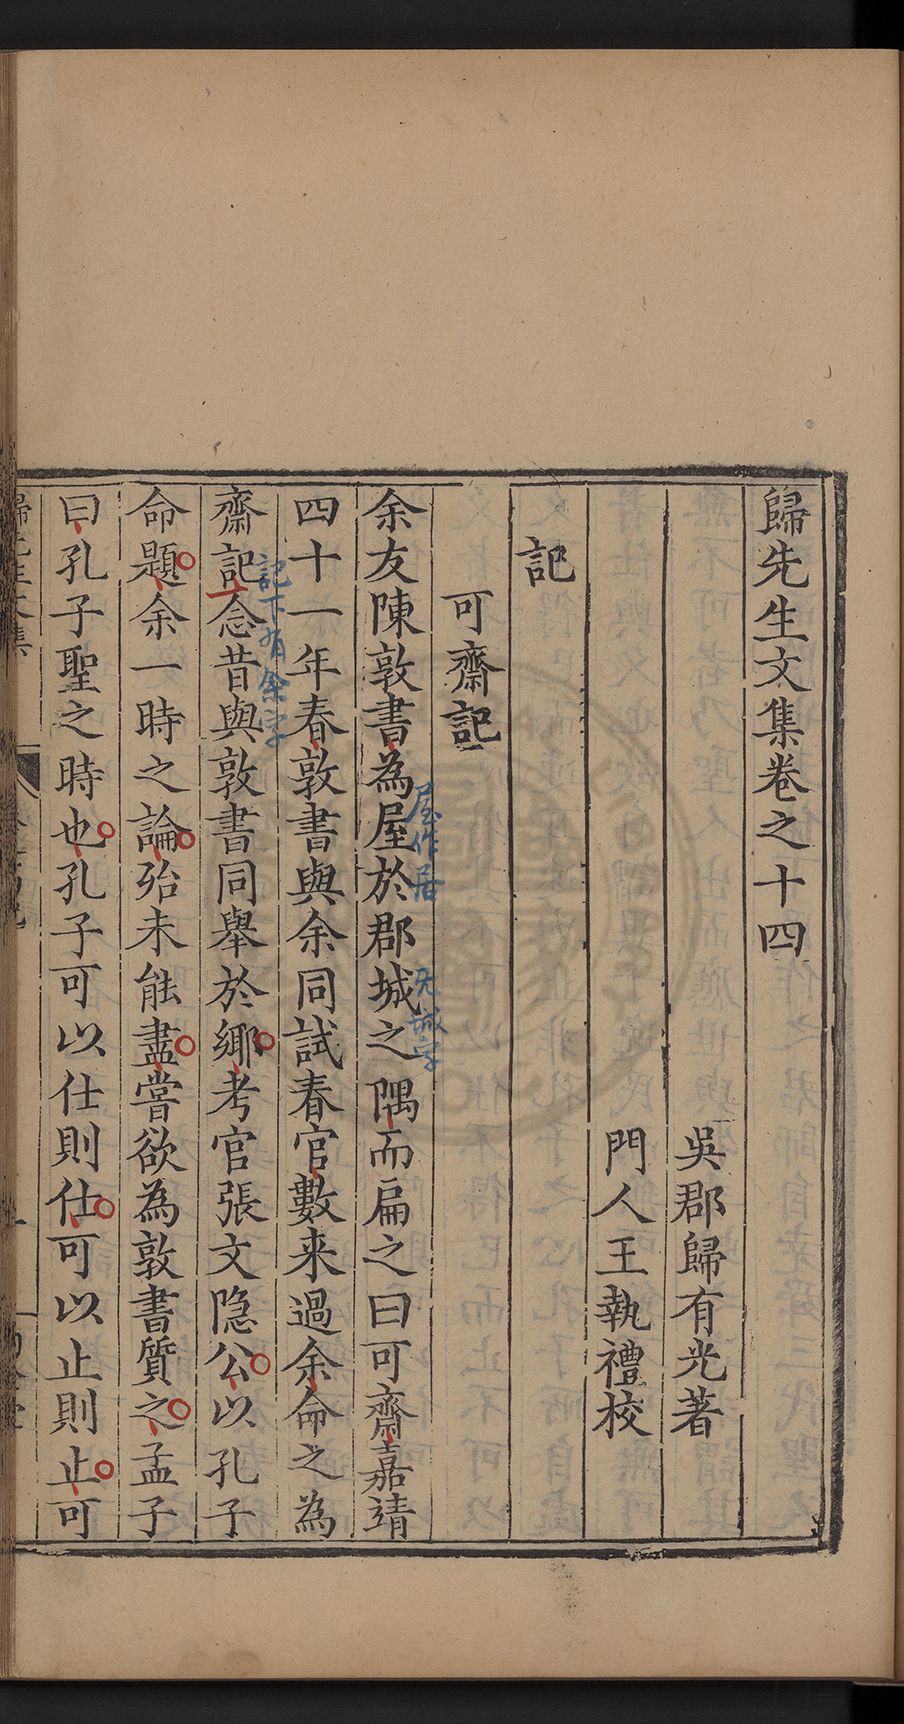 歸先生文集卷之十四
吳郡歸有光著
門人王執禮校
記
可齋記
余友陳敦書為屋於郡城之隅而扁之曰可齋嘉靖
屋作居
无城字
四十一年春敦書與余同試春官數来過余命之為
齋記念昔與敦書同舉於鄉考官張文隐公以孔子
記下有余字
命題余一時之論殆未能盡嘗欲為敦書質之孟子
曰孔子聖之時也孔子可以仕則仕可以止則止可